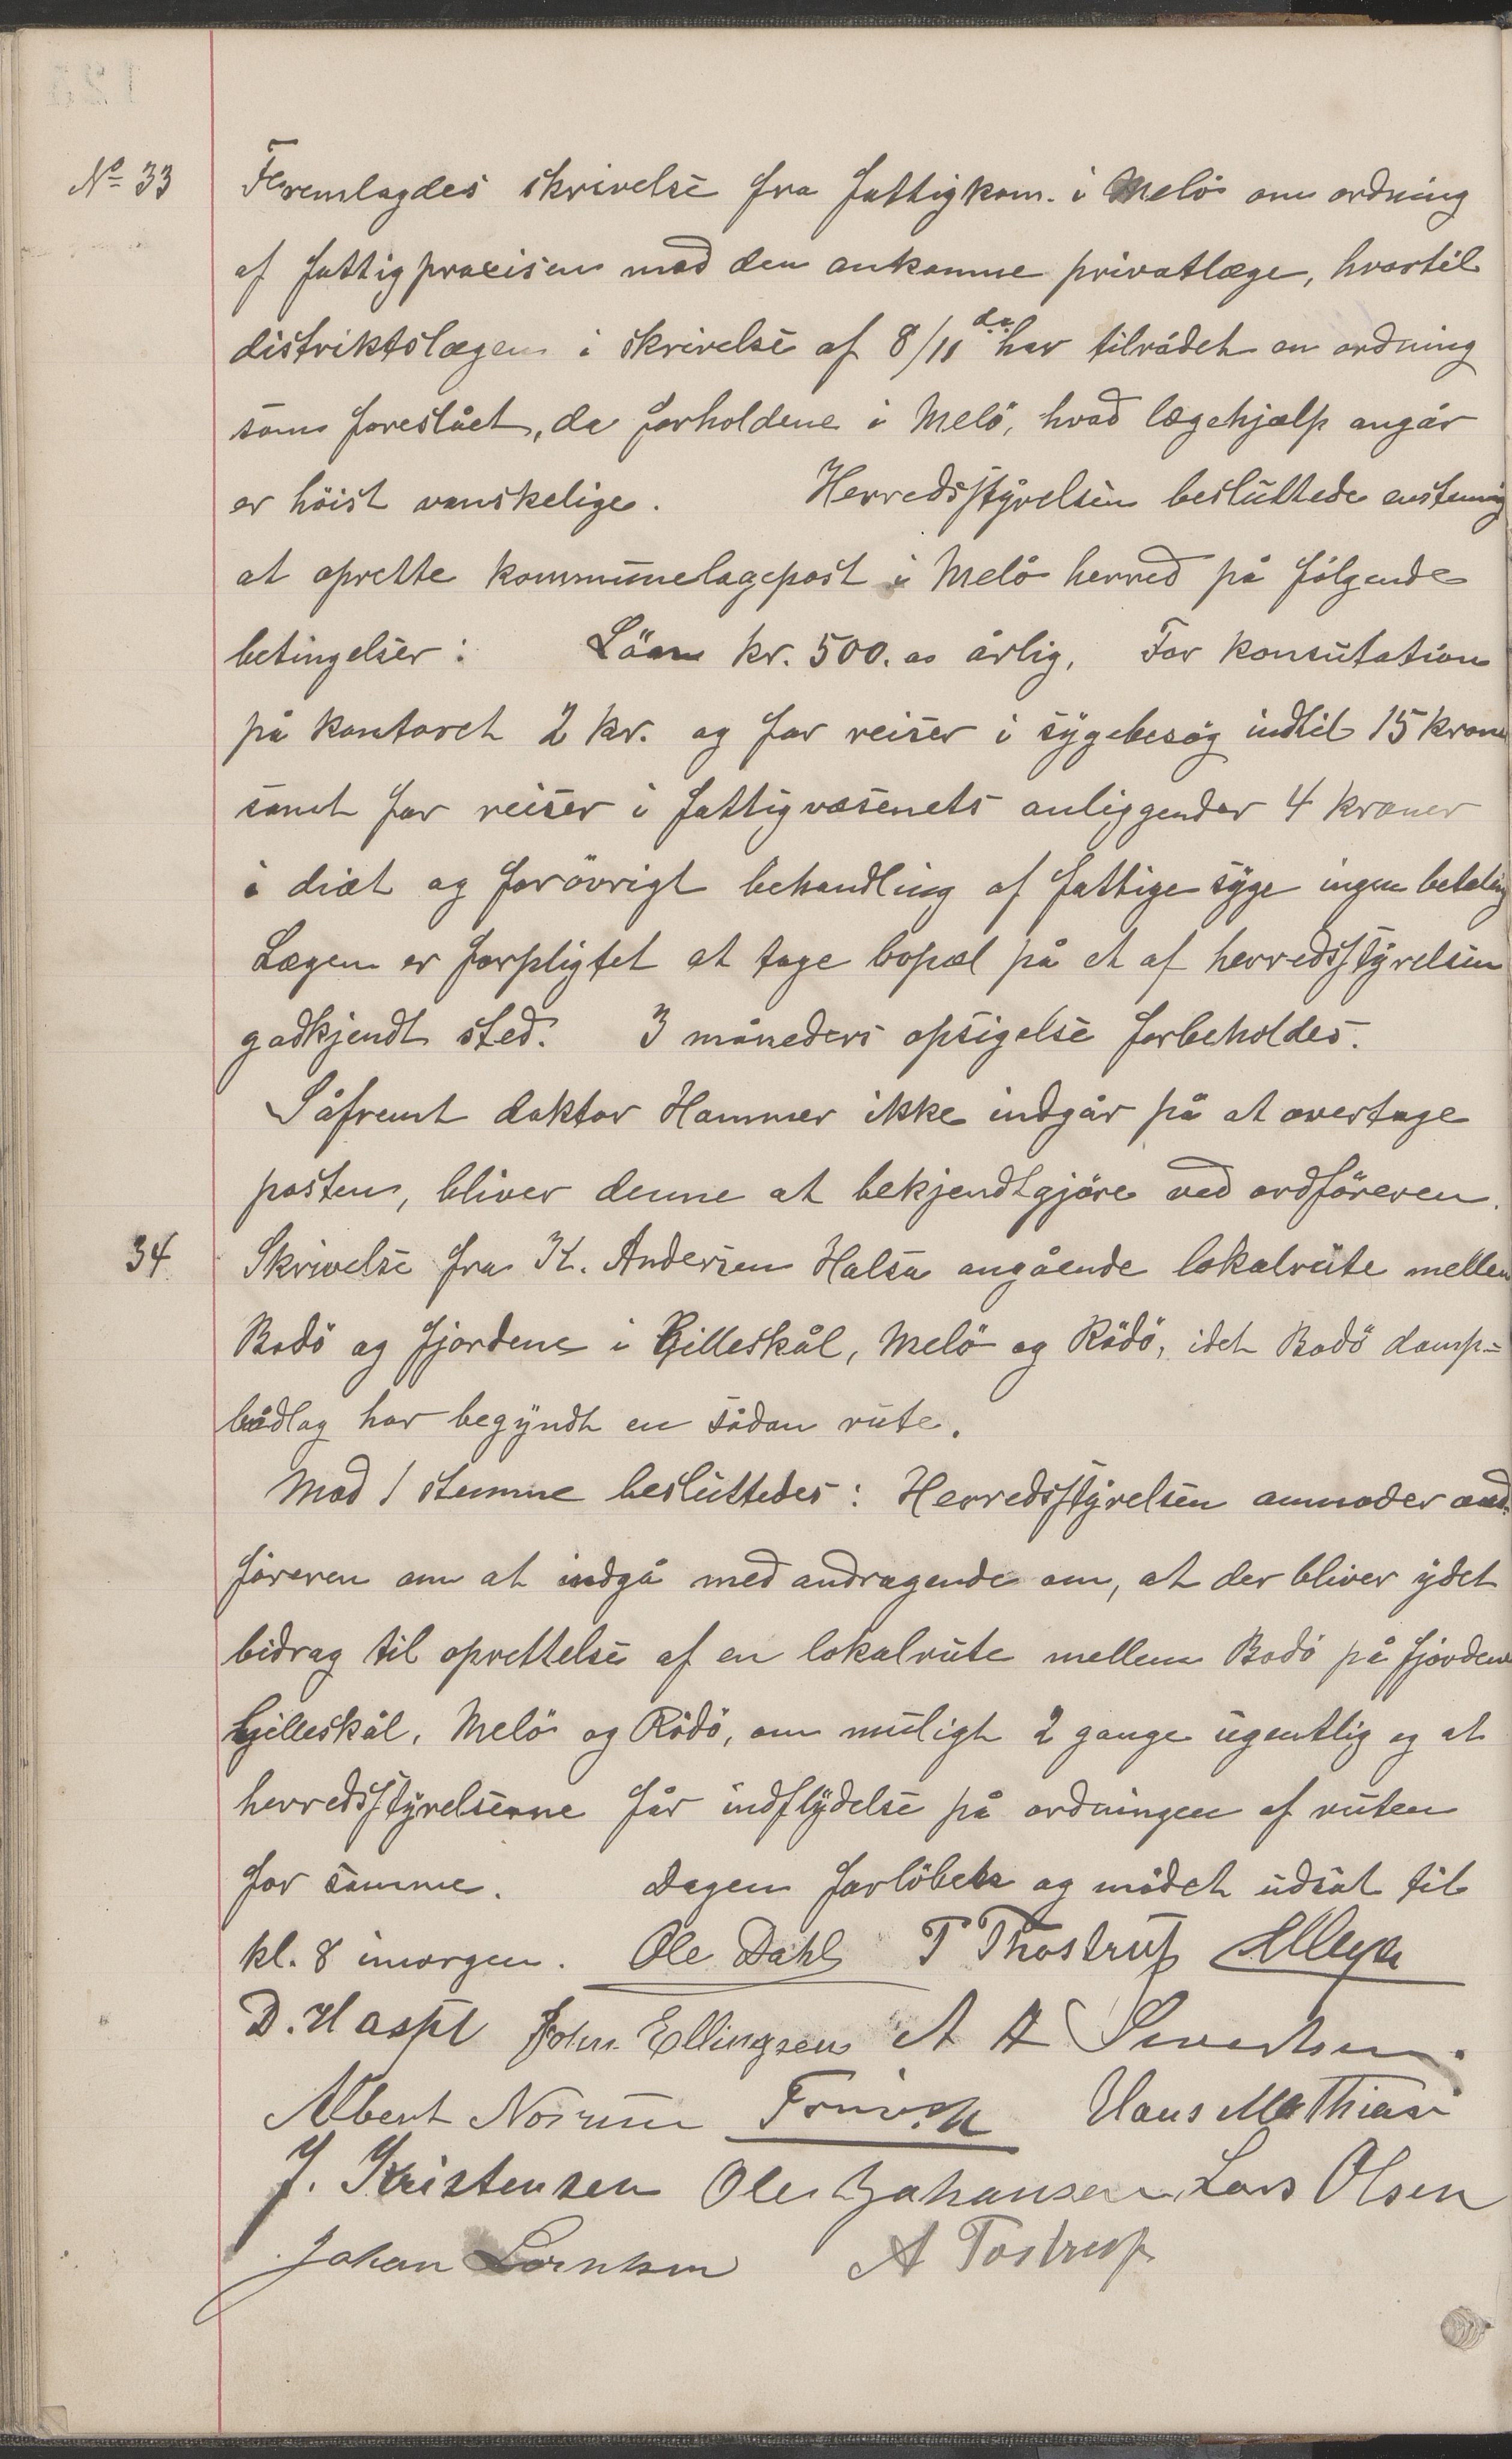 No 33 Fremlagdes skrivelse fra fattigkom. i Melö om ordning
af fattigpraxisen med den ankomne privatlæge, hvortil
distriktslægen i skrivelse af 8/11 d.a. har tilrådet en ordning
som foreslået, da forholdene i Melö, hvad lægehjælp angår
er höist vanskelige. Herredsstyrelsen besluttede enstemig
at oprette kommunelægepost i Melö herred på fölgende
betingelser: Lön kr. 500.00 årlig, For konsutation
på kontoret 2 kr. og for reiser i sygebesög indtil 15 kroner
samt for reiser i fattigvæsenets anliggender 4 kroner
i diæt og forövrigt behandling af fattige syge ingen betaling
Lægen er forpligtet at tage bopæl på et af herredsstyrelsen
godkjendt sted. 3 måneders opsigelse forbeholdes.
Såfremt doktor Hammer ikke indgår på at overtage
posten, bliver denne at bekjendtgjöre ved ordföreren.
34 Skrivelse fra K. Andersen Halsa angående lokalrute mellem
Bodö og fjordene i Gilleskål, Melö og Rödö, idet Bodö damp=
bådlag har begyndt en sådan rute.
Mod 1 stemme besluttedes: Herredsstyrelsen anmoder ord=
föreren om at indgå med andragende om, at der bliver ydet
bidrag til oprettelse af en lokalrute mellem Bodö på fjordene
Gilleskål, Melö og Rödö, om muligt 2 gange ugentlig og at
herredsstyrelserne får indflydelse på ordningen af ruten
for samme. Dagen forlöben og mödet udsat til
kl. 8 imorgen. Ole Dahl P Thostrup
D. Haspl John Ellingsen A A Sivertsen.
Albert Norum Hans Mathias
J. Kristensen Ole Johansen Lars Olsen
Johan Lorntsen A Tostrup